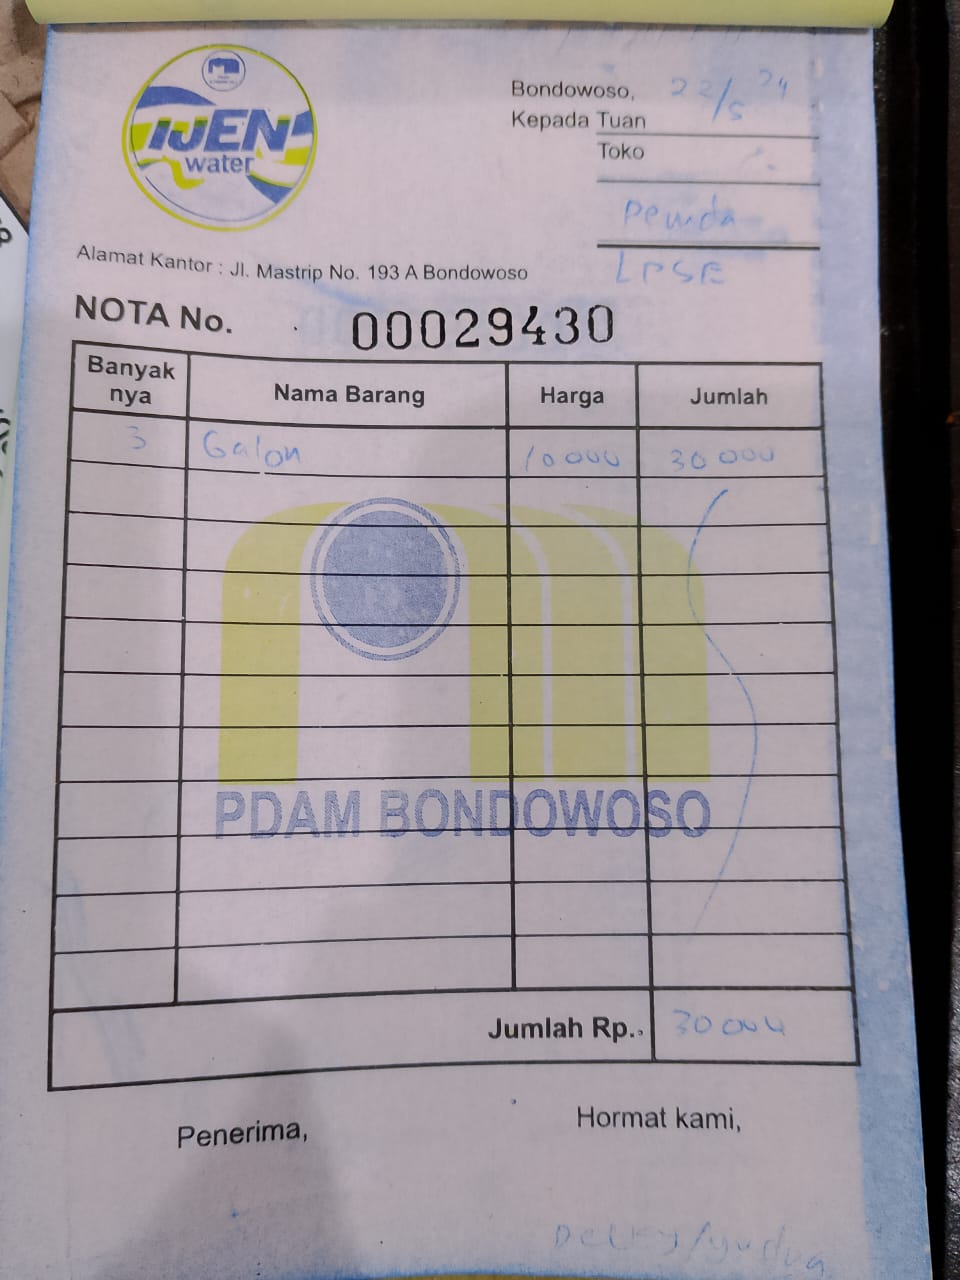 IJEN
water
Bondowoso, 22/5 24
Kepada Tuan
Toko
Pemda
LPSE
Alamat Kantor : Jl. Mastrip No. 193 A Bondowoso
NOTA No. 00029430
Banyak nya Nama Barang Harga Jumlah
3 Galon 10 000 30 000
PDAM BONDOWOSO
Jumlah Rp. 30 000
Penerima, Hormat kami,